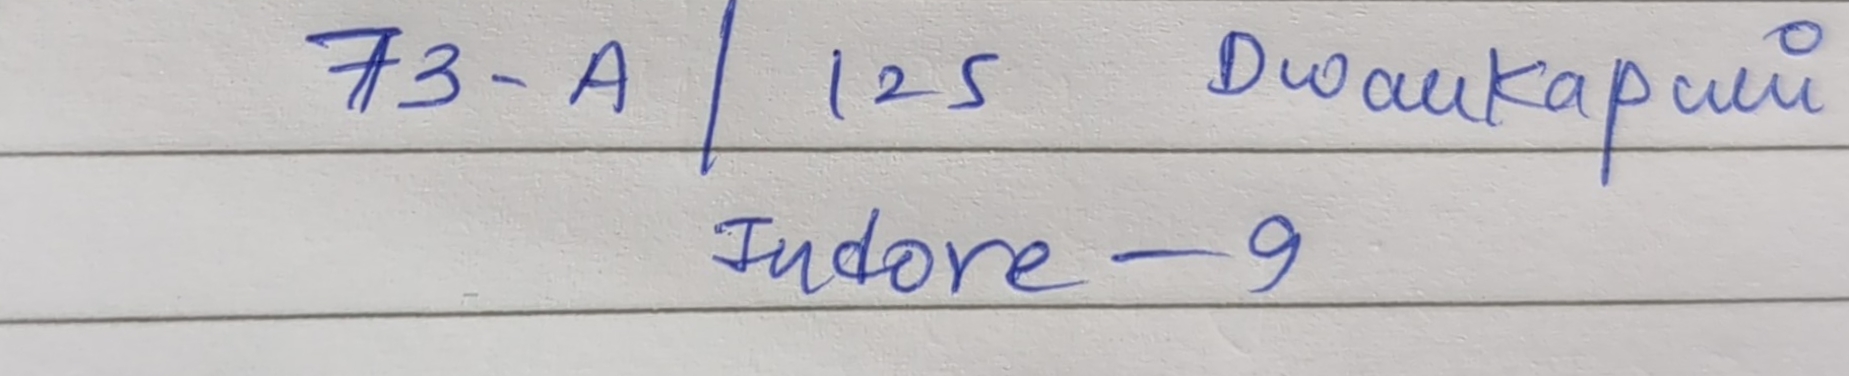 73-A / 125 Dwarkapuri
Indore - 9